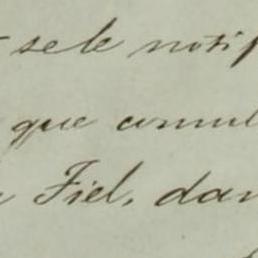 sele notif
que comul
Fiel, dan